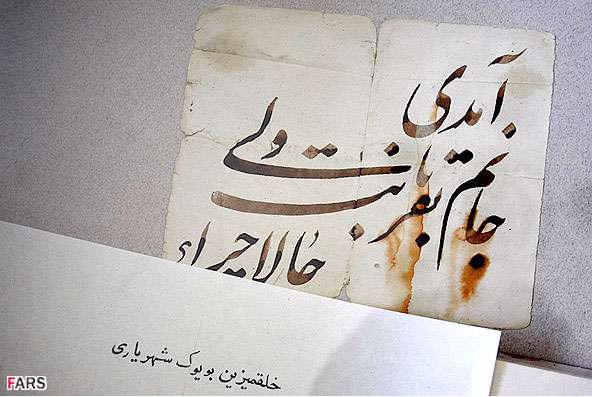 آمدی
جانم بقربانت ولی
حالا چرا
خلقمیزین بویوک شهریاری
FARS